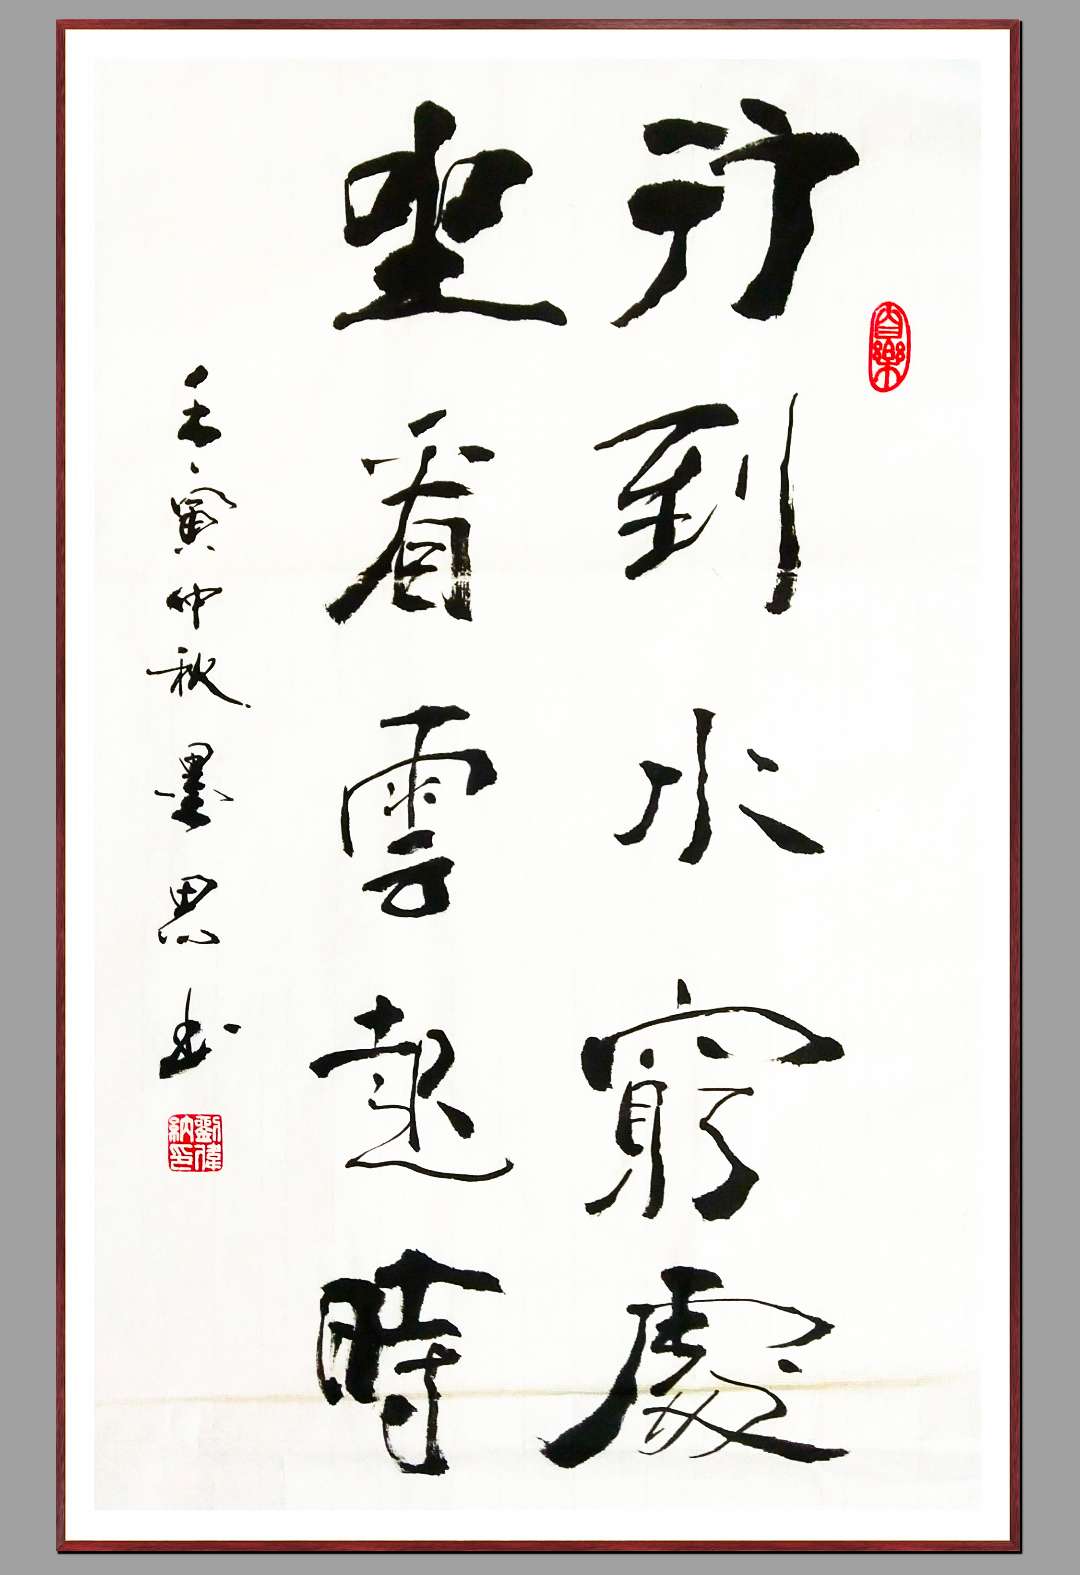 行到水窮處
坐看雲起時
壬寅仲秋墨思書
劉偉納印